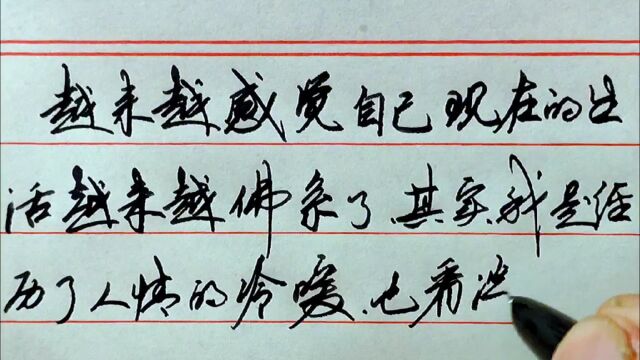 越来越感觉自己现在的生
活越来越佛系了、其实、我是经
历了人情的冷暖、也看